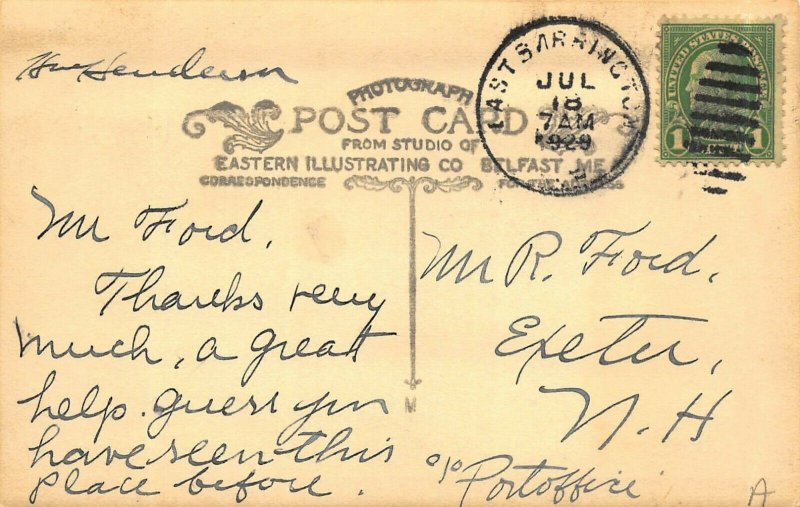 Wm Henderson
PHOTOGRAPH
POST CARD
FROM STUDIO OF
EASTERN ILLUSTRATING CO BELFAST ME
CORRESPONDENCE
EAST BARRINGTON
JUL
18
7AM
1929
UNITED STATES POSTAGE
1 1
Mr Ford.
Thanks very
much, a great
help. guess you
have seen this
place before.
M
Mr R. Ford.
Exeter,
N. H
c/o Portoffice
A